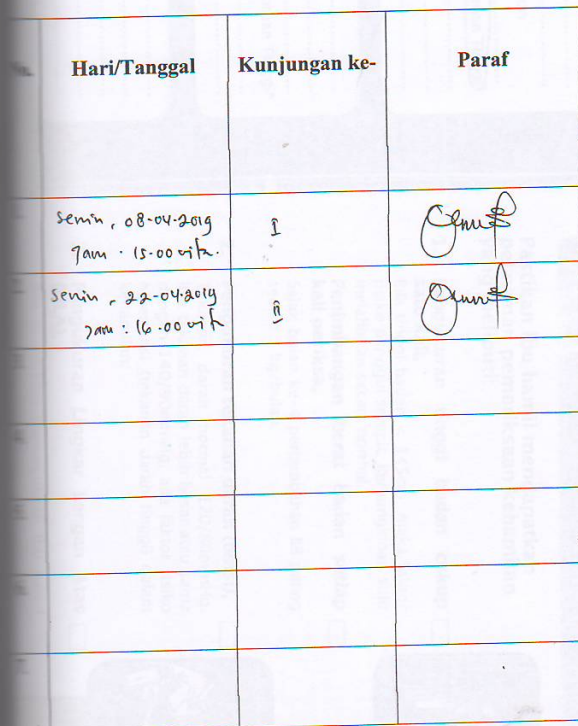 Hari/Tanggal Kunjungan ke- Paraf
Senin, 08-04-2019 I
Jam . 15.00 wita.
Senin, 22-04-2019 II
Jam : 16.00 wita